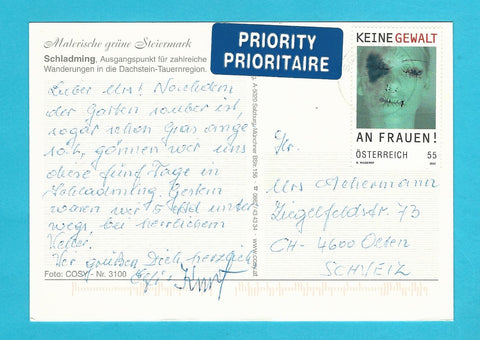 Malerische grüne Steiermark
Schladming, Ausgangspunkt für zahlreiche
Wanderungen in die Dachstein-Tauernregion.
Lieber Urs! Nachdem
der Garten sauber ist,
sogar schon Gras ange-
sät, gönnen wir uns
diese fünf Tage in
Schladming. Gestern
waren wir 5 Std unter-
wegs, bei herrlichem
Wetter.
Wir grüßen Dich herzlich
Kurt
Foto: COSY - Nr. 3100
A-5020 Salzburg
www.cosy.at
PRIORITY
PRIORITAIRE
KEINE GEWALT
AN FRAUEN!
ÖSTERREICH 55
Hr.
Urs Ackermann
Ziegelfeldstr. 73
CH-4600 Olten
SCHWEIZ